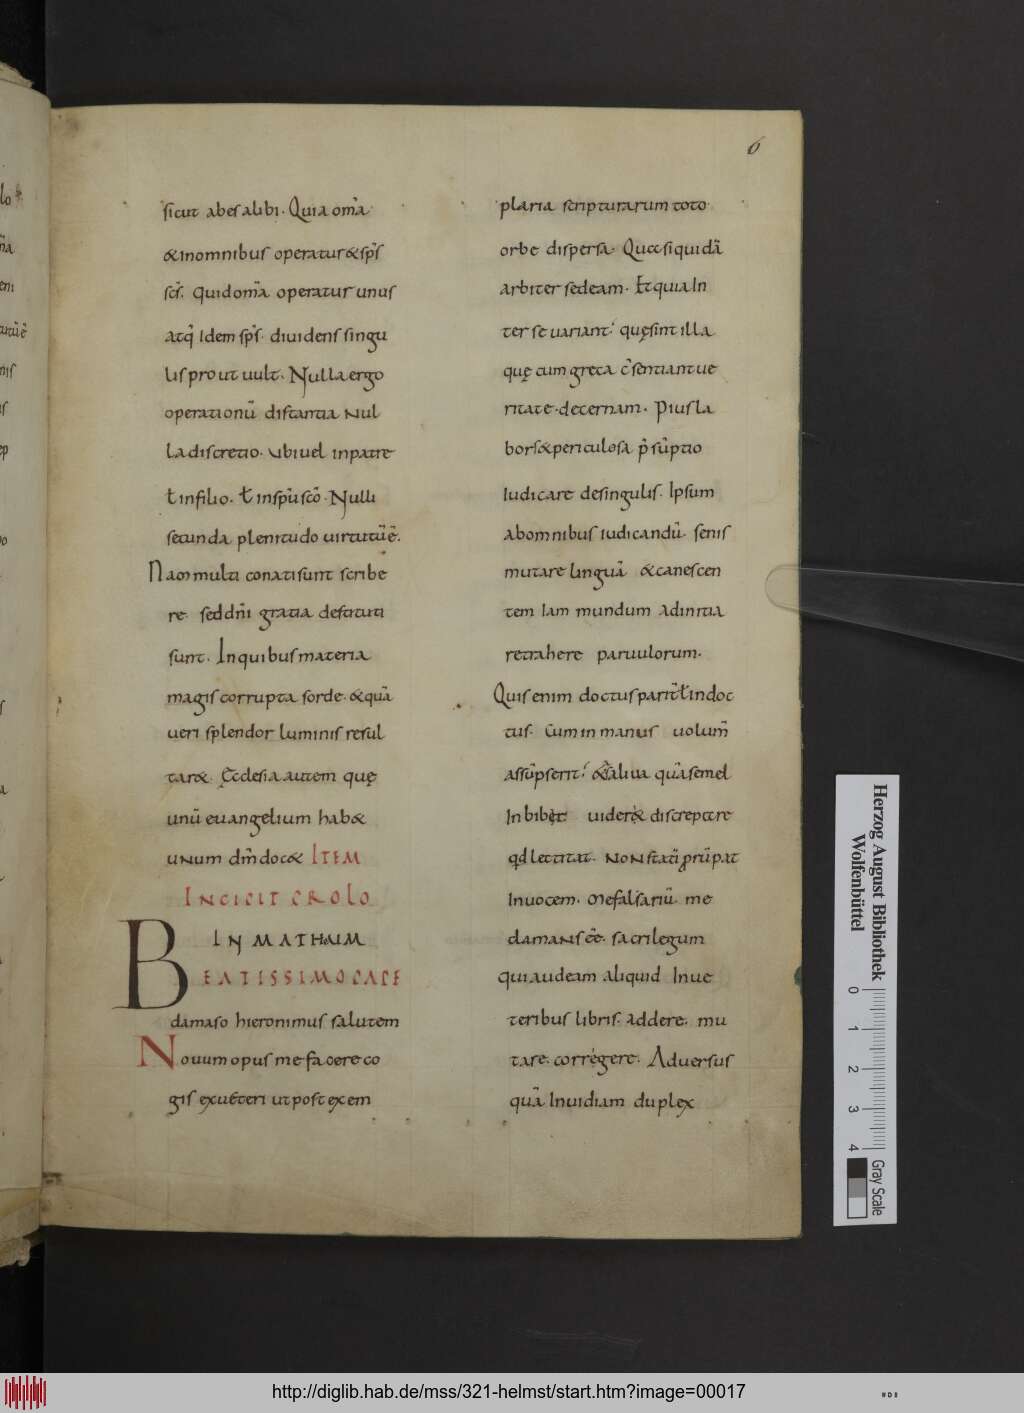 6
sicut abes alibi. Quia om̄a
& inomnibus operatur & sp̄s
sc̄s. Quid om̄a operatur unus
atq; Idem sp̄s. diuidens singu
lis prout uult. Nulla ergo
operationū distantia nul
la discretio. Vbi uel inpatre
ł infilio. ł inspū scō. Nulli
secunda plenitudo uirtutū ē.
Nam multi conati sunt scribe
re. sed dn̄i gratia destituti
sunt. In quibus materia
magis corrupta sorde. & quā
ueri splendor luminis resul
tar&. Ęcclesia autem quę
unū euangelium hab&
unum dm̄ doc& ITEM
INCIPIT PROLO
IN MATHAUM
BEATISSIMO PAPE
damaso hieronimus salutem
Nouum opus me facere co
gis ex ueteri ut post exem
plaria scripturarum toto
orbe dispersa. Quasi quidā
arbiter sedeam. Et quia In
ter se uariant. quę sint illa
quę cum greca c̄sentiant ue
ritate. decernam. Pius la
bor s& periculosa p̄sūptio
Iudicare desingulis. Ipsum
abomnibus iudicandū. senis
mutare linguā & canescen
tem Iam mundum adinitia
retrahere paruulorum.
Quis enim doctus parit̄ ł indoc
tus. Cum in manus uolum̄
assūpserit. & saliua quā semel
Inbibit uider& discrepare
qd lectitat. NON statī prūpat
Inuocem. me falsariū me
clamans c̄e. sacrilegum
qui audeam aliquid Inue
teribus libris. addere. mu
tare. corrigere. Aduersus
quā Inuidiam duplex
Herzog August Bibliothek
Wolfenbüttel
0 1 2 3 4
Gray Scale
http://diglib.hab.de/mss/321-helmst/start.htm?image=00017